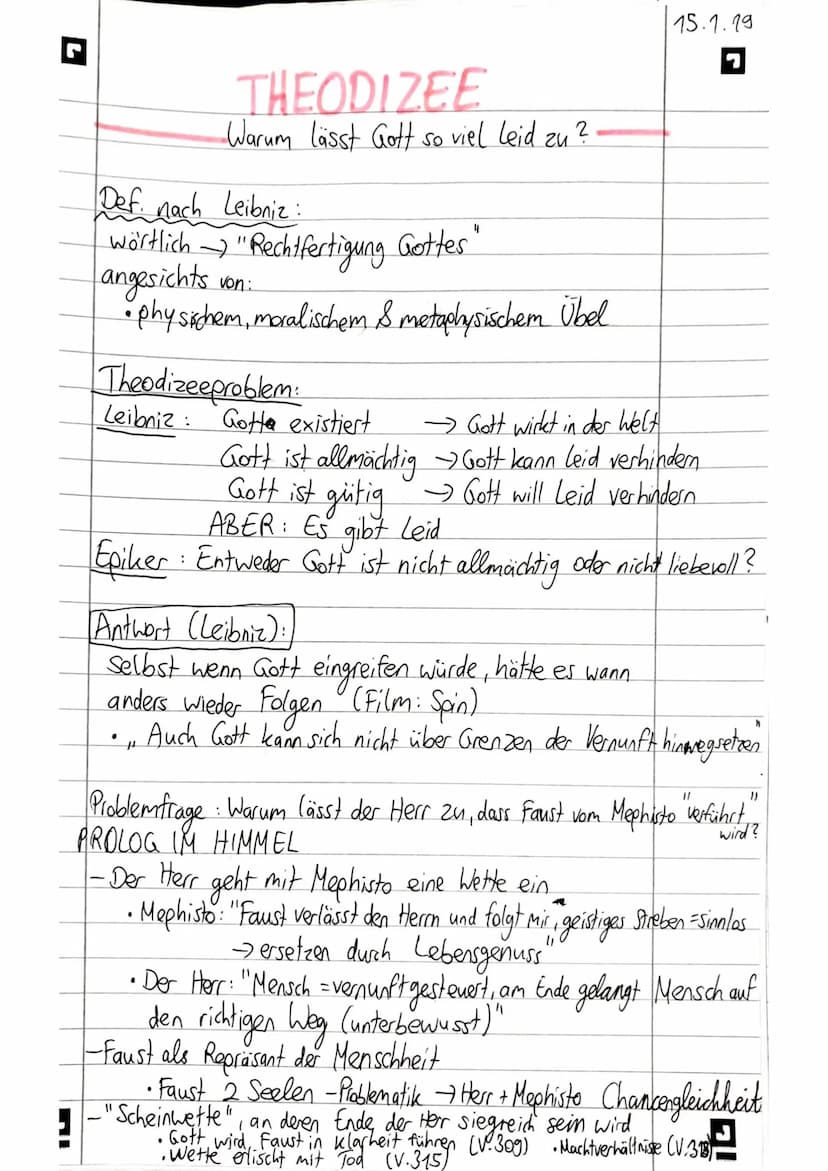 15.1.19
THEODIZEE
Warum lässt Gott so viel Leid zu?
Def. nach Leibniz:
wörtlich → "Rechtfertigung Gottes"
angesichts von:
• physischem, moralischem & metaphysischem Übel
Theodizeeproblem:
Leibniz: Gott existiert → Gott wirkt in der Welt
Gott ist allmächtig → Gott kann Leid verhindern
Gott ist gütig → Gott will Leid verhindern
ABER: Es gibt Leid
Epiker: Entweder Gott ist nicht allmächtig oder nicht liebevoll?
Antwort (Leibniz):
Selbst wenn Gott eingreifen würde, hätte es wann
anders wieder Folgen (Film: Spin)
• „Auch Gott kann sich nicht über Grenzen der Vernunft hinwegsetzen"
Problemfrage: Warum lässt der Herr zu, dass Faust vom Mephisto "verführt"
wird?
PROLOG IM HIMMEL
- Der Herr geht mit Mephisto eine Wette ein
• Mephisto: "Faust verlässt den Herrn und folgt mir, geistiges Streben = sinnlos
→ ersetzen durch Lebensgenuss"
• Der Herr: "Mensch = vernunftgesteuert, am Ende gelangt Mensch auf
den richtigen Weg (unterbewusst)"
- Faust als Repräsant der Menschheit
• Faust 2 Seelen - Problematik → Herr + Mephisto Chancengleichheit
- "Scheinwette", an deren Ende der Herr siegreich sein wird
• Gott wird Faust in Klarheit führen (V. 309) • Machtverhältnise (V.
• Wette erlischt mit Tod (V. 315)